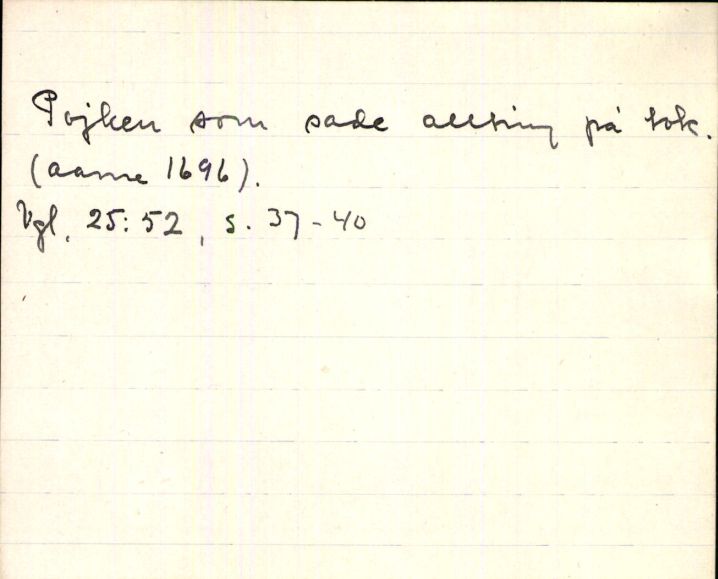 Pojken som sade allting på tok.
(aarne 1696).
Vgl, 25:52, s. 37-40